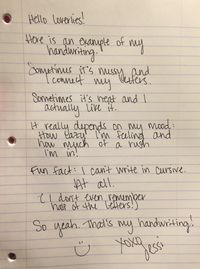 Hello Loverlies!
Here is an example of my
handwriting.
Sometimes it's messy and
I connect my letters.
Sometimes it's neat and I
actually like it.
It really depends on my mood:
How lazy I'm feeling and
how much of a rush
I'm in!
Fun fact: I can't write in cursive.
At all.
(I don't even remember
half of the letters!)
So yeah. That's my handwriting!
XOXO
Jessi